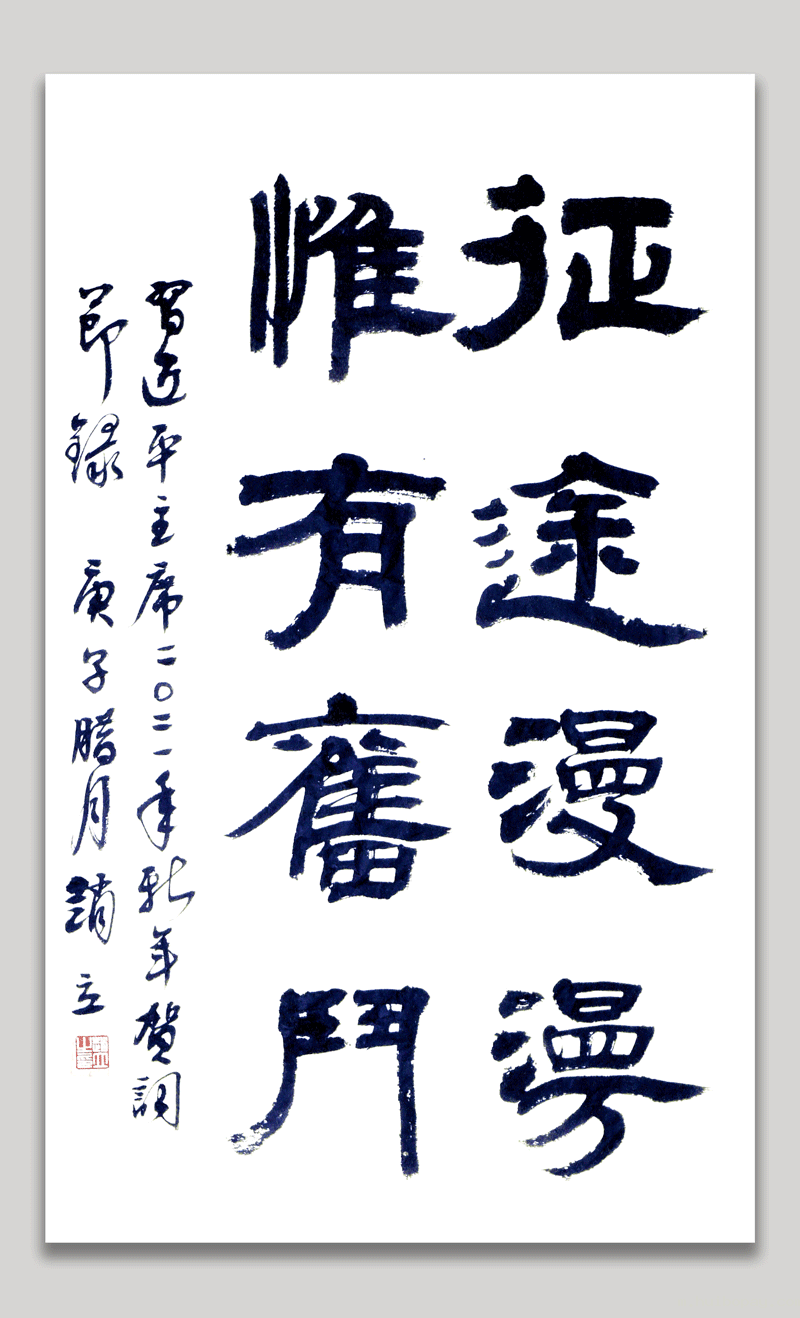 征途漫漫
惟有奮鬥
習近平主席二〇二一年新年贺詞
節録 庚子腊月 趙立